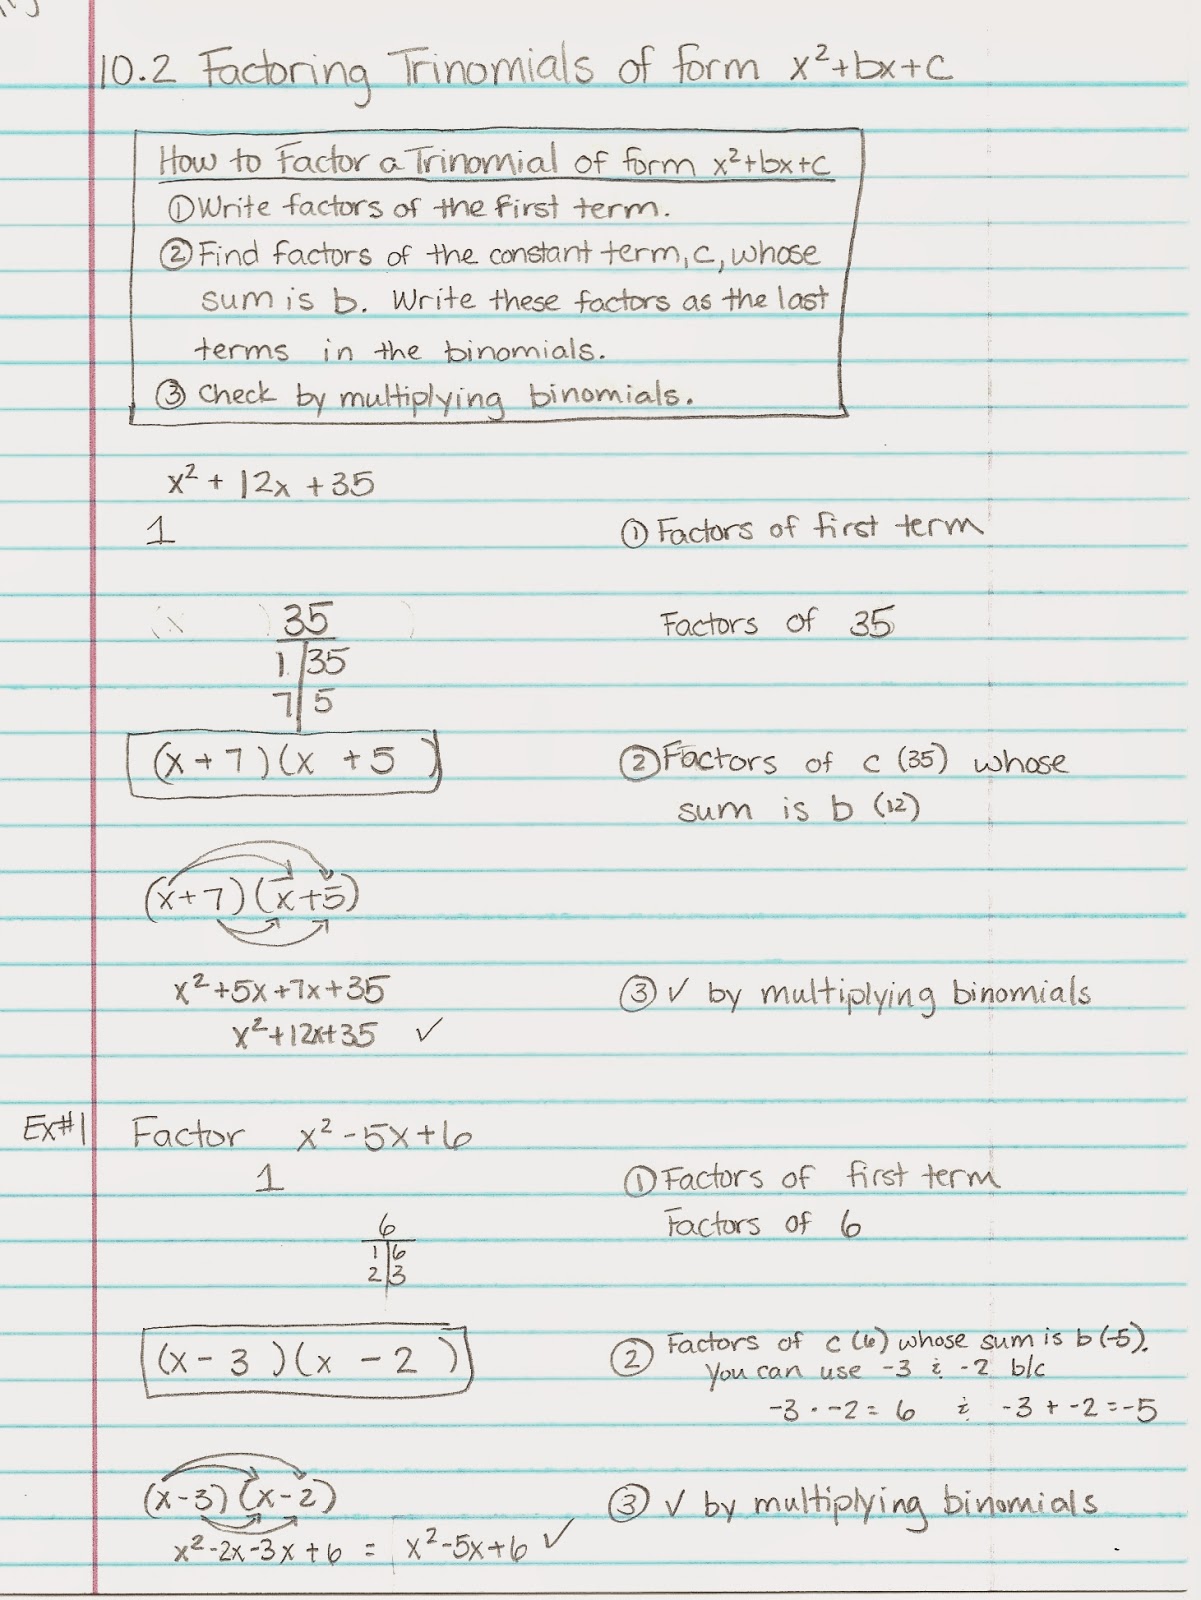 10.2 Factoring Trinomials of form x²+bx+c
How to Factor a Trinomial of form x²+bx+c
① Write factors of the first term.
② Find factors of the constant term, c, whose
sum is b. Write these factors as the last
terms in the binomials.
③ Check by multiplying binomials.
x² + 12x + 35
1
① Factors of first term
35
Factors of 35
1 | 35
7 | 5
(x + 7)(x + 5)
② Factors of c (35) whose
sum is b (12)
(x+7)(x+5)
x²+5x+7x+35
③ ✓ by multiplying binomials
x²+12x+35 ✓
Ex#1 Factor x²-5x+6
1
① Factors of first term
6
Factors of 6
1 | 6
2 | 3
(x - 3)(x - 2)
② Factors of c (6) whose sum is b (-5).
You can use -3 & -2 b/c
-3 · -2 = 6 & -3 + -2 = -5
(x-3)(x-2)
③ ✓ by multiplying binomials
x²-2x-3x+6 = x²-5x+6 ✓